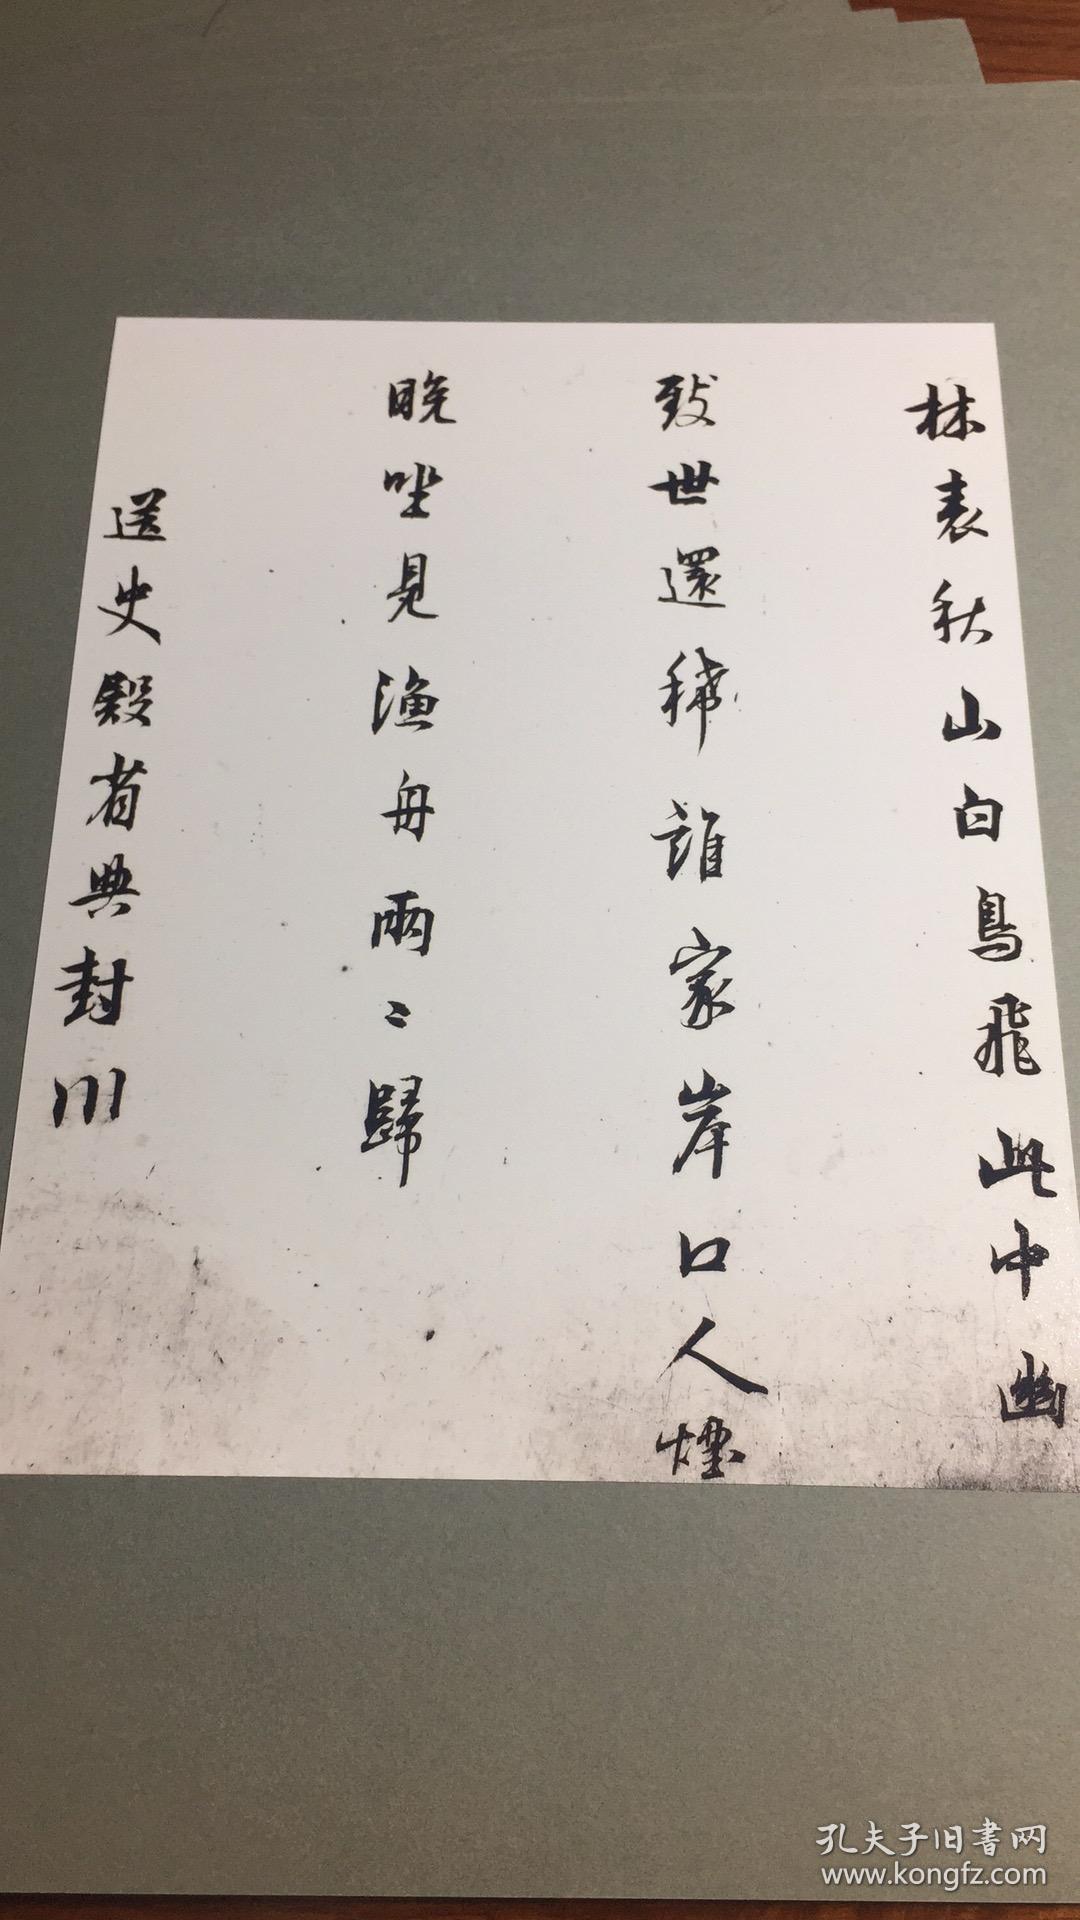 林表秋山白鳥飛此中幽
致世還稀誰家岸口人煙
晚坐見漁舟兩〻歸
送史殷省典封川
孔夫子旧书网
www.kongfz.com